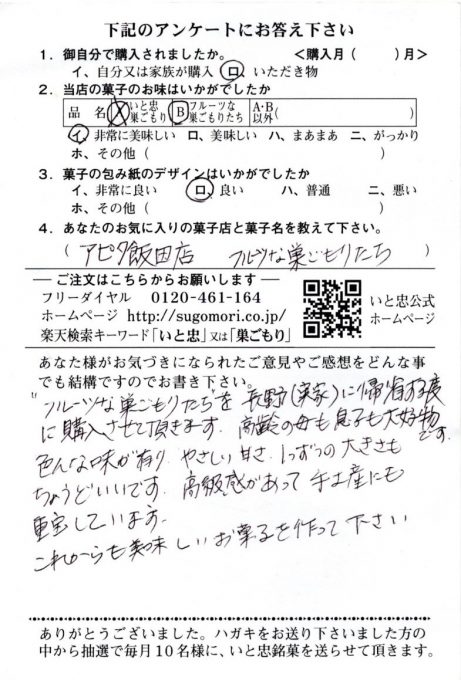 下記のアンケートにお答え下さい
1. 御自分で購入されましたか。 ＜購入月（　　）月＞
イ、自分又は家族が購入 ロ、いただき物
2. 当店の菓子のお味はいかがでしたか
品 名 A いと忠巣ごもり B フルーツな巣ごもりたち A・B以外（　　）
イ、非常に美味しい ロ、美味しい ハ、まあまあ ニ、がっかり
ホ、その他（　　）
3. 菓子の包み紙のデザインはいかがでしたか
イ、非常に良い ロ、良い ハ、普通 ニ、悪い
ホ、その他（　　）
4. あなたのお気に入りの菓子店と菓子名を教えて下さい。
（ アピタ飯田店 フルーツな巣ごもりたち ）
― ご注文はこちらからお願いします ―
フリーダイヤル 0120-461-164
ホームページ http://sugomori.co.jp/
楽天検索キーワード「いと忠」又は「巣ごもり」
いと忠公式
ホームページ
あなた様がお気づきになられたご意見やご感想をどんな事
でも結構ですのでお書き下さい。
"フルーツな巣ごもりたち"を 長野(実家)に帰省する度
に購入させて頂きます。高齢の母も息子も大好物です。
色んな味が有り やさしい甘さ、1つずつの大きさも
ちょうどいいです。高級感があって 手土産にも
重宝しています。
これからも美味しいお菓子を作って下さい
ありがとうございました。ハガキをお送り下さいました方の
中から抽選で毎月10名様に、いと忠銘菓を送らせて頂きます。